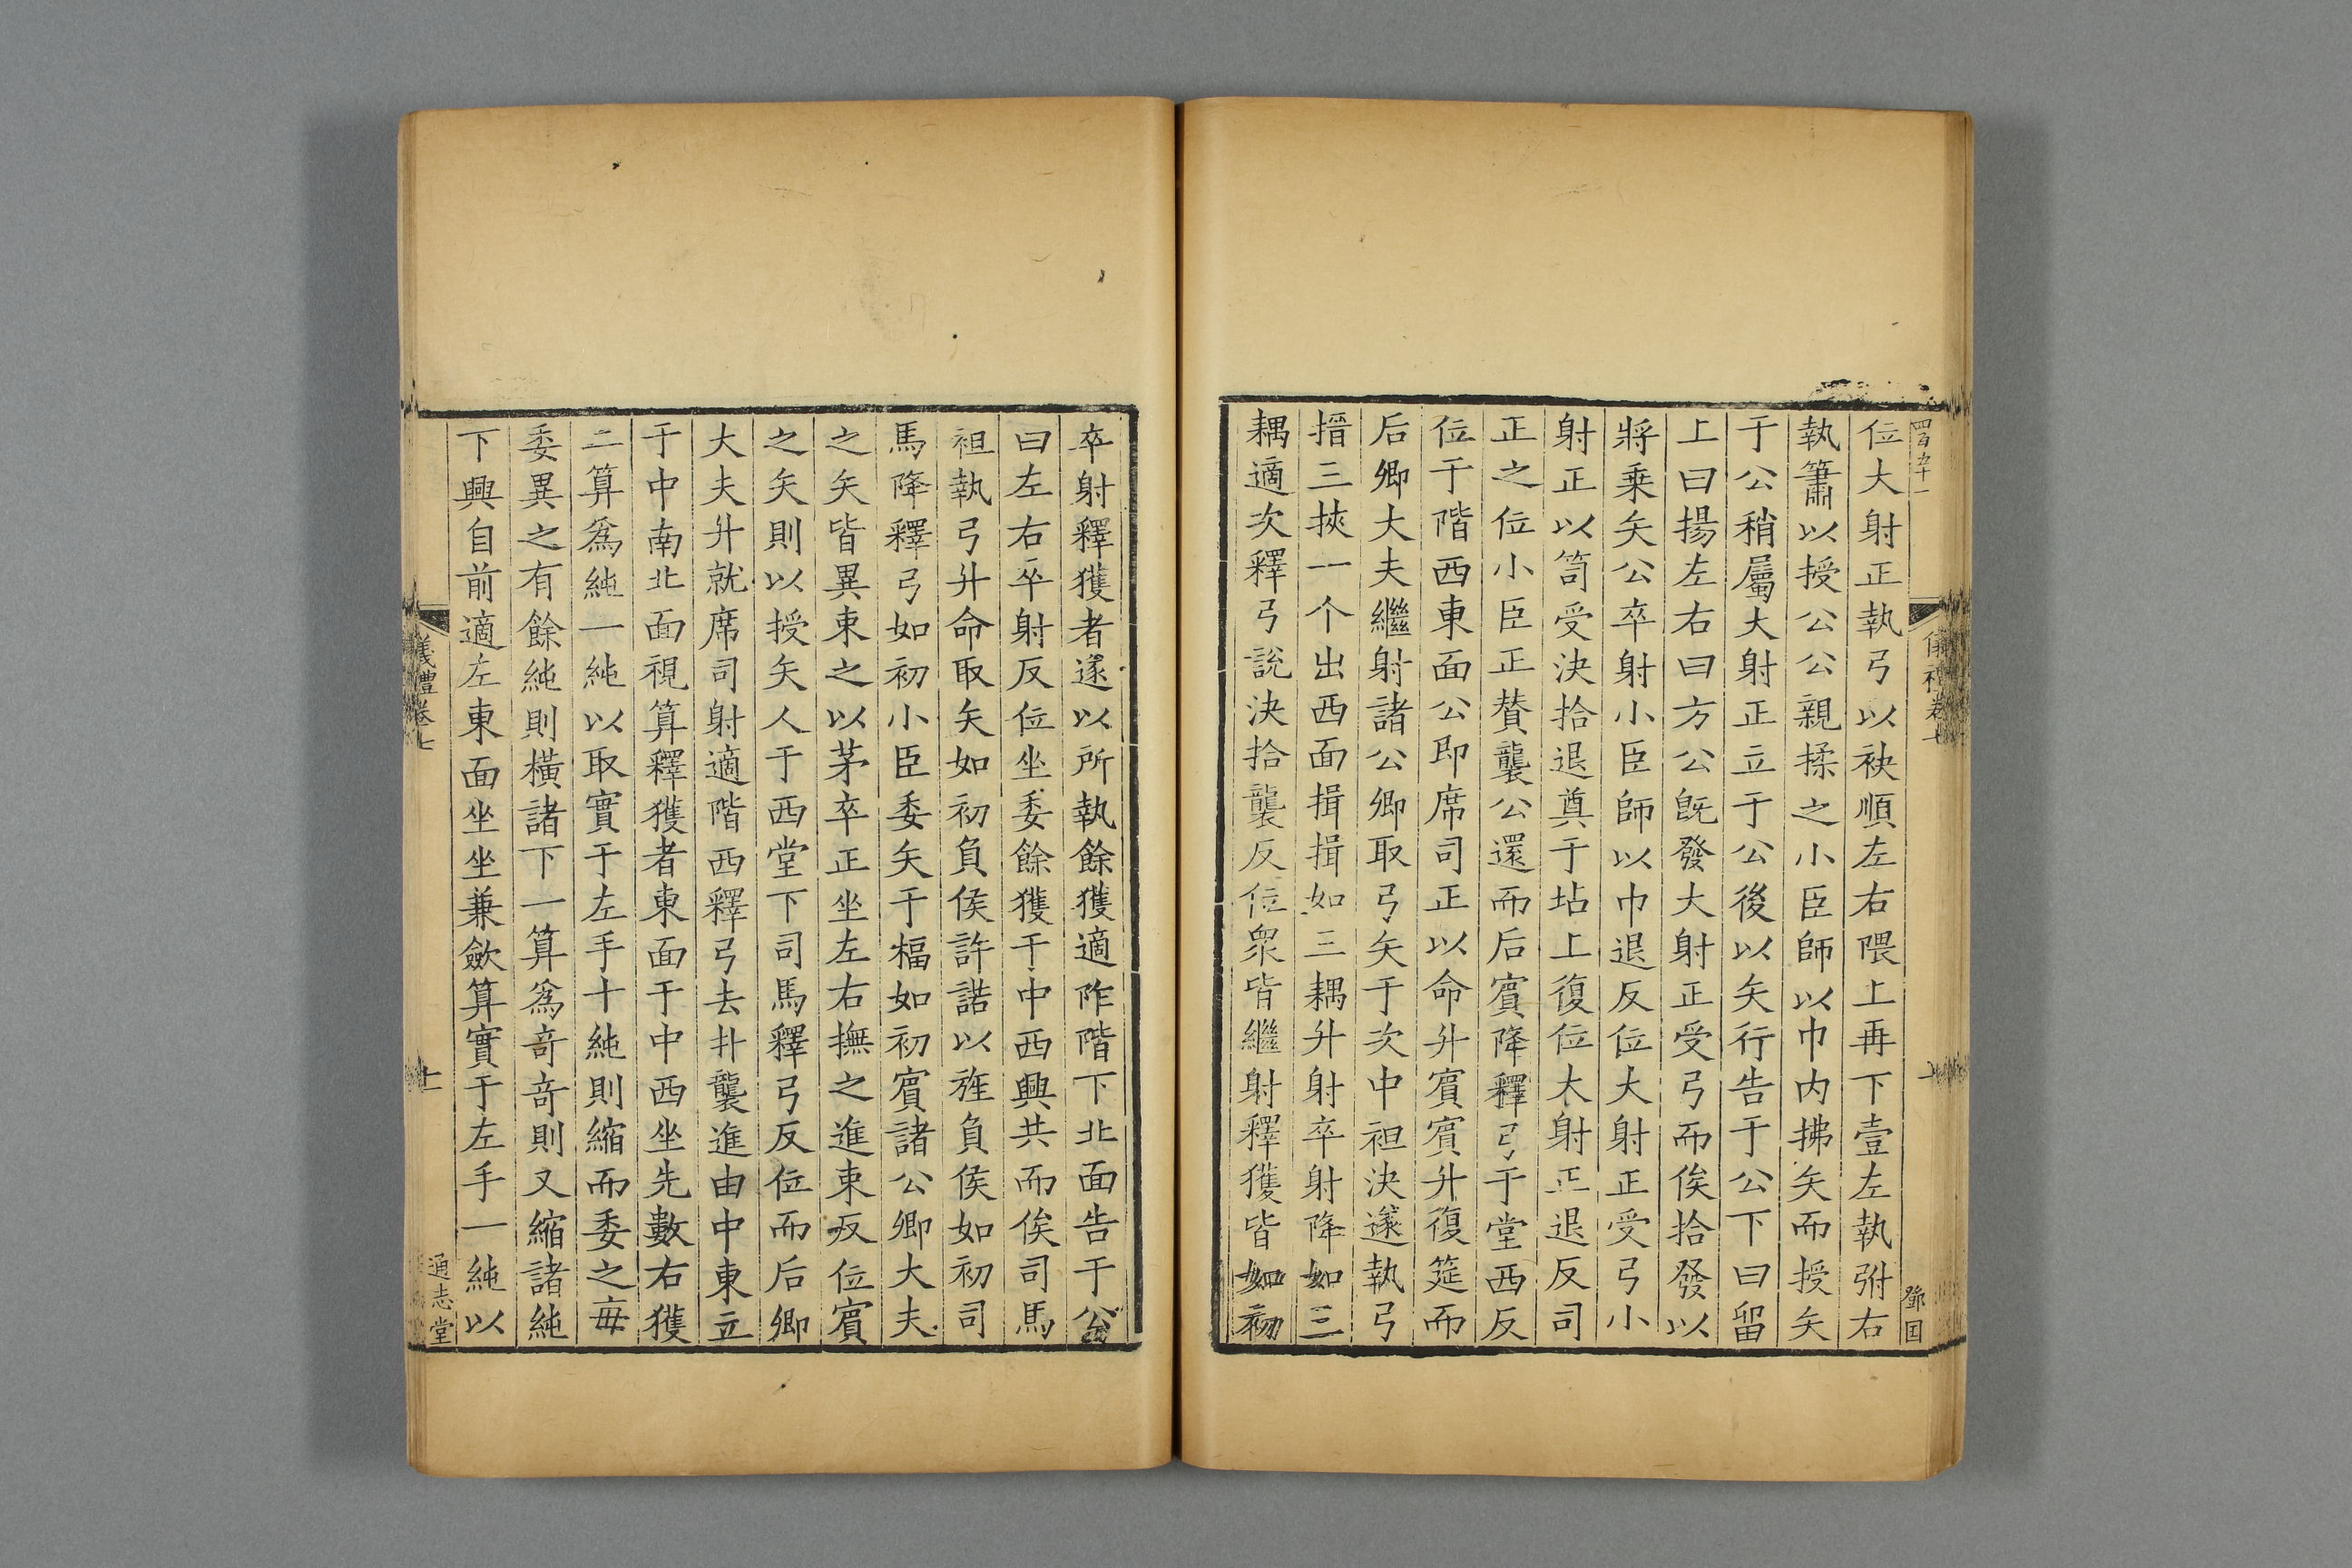 四百九十一
位大射正執弓以袂順左右隈上再下壹左執弣右
執簫以授公公親揉之小臣師以巾内拂矢而授矢
于公稍屬大射正立于公後以矢行告于公下曰留
上曰揚左右曰方公旣發大射正受弓而俟拾發以
將乗矢公卒射小臣師以巾退反位大射正受弓小
射正以笥受決拾退奠于坫上復位大射正退反司
正之位小臣正賛襲公還而后賔降釋弓于堂西反
位于階西東面公即席司正以命升賔賔升復筵而
后卿大夫繼射諸公卿取弓矢于次中袒決遂執弓
搢三挾一个出西面揖揖如三耦升射卒射降如三
耦適次釋弓說決拾襲反位衆皆繼射釋獲皆如初
儀禮卷七
鄧国
卒射釋獲者遂以所執餘獲適阼階下北面告于公
曰左右卒射反位坐委餘獲于中西興共而俟司馬
袒執弓升命取矢如初負侯許諾以旌負侯如初司
馬降釋弓如初小臣委矢于楅如初賔諸公卿大夫
之矢皆異束之以茅卒正坐左右撫之進束反位賔
之矢則以授矢人于西堂下司馬釋弓反位而后卿
大夫升就席司射適階西釋弓去扑襲進由中東立
于中南北面視算釋獲者東面于中西坐先數右獲
二算爲純一純以取實于左手十純則縮而委之毎
委異之有餘純則橫諸下一算爲竒竒則又縮諸純
下興自前適左東面坐坐兼斂算實于左手一純以
儀禮卷七
通志堂